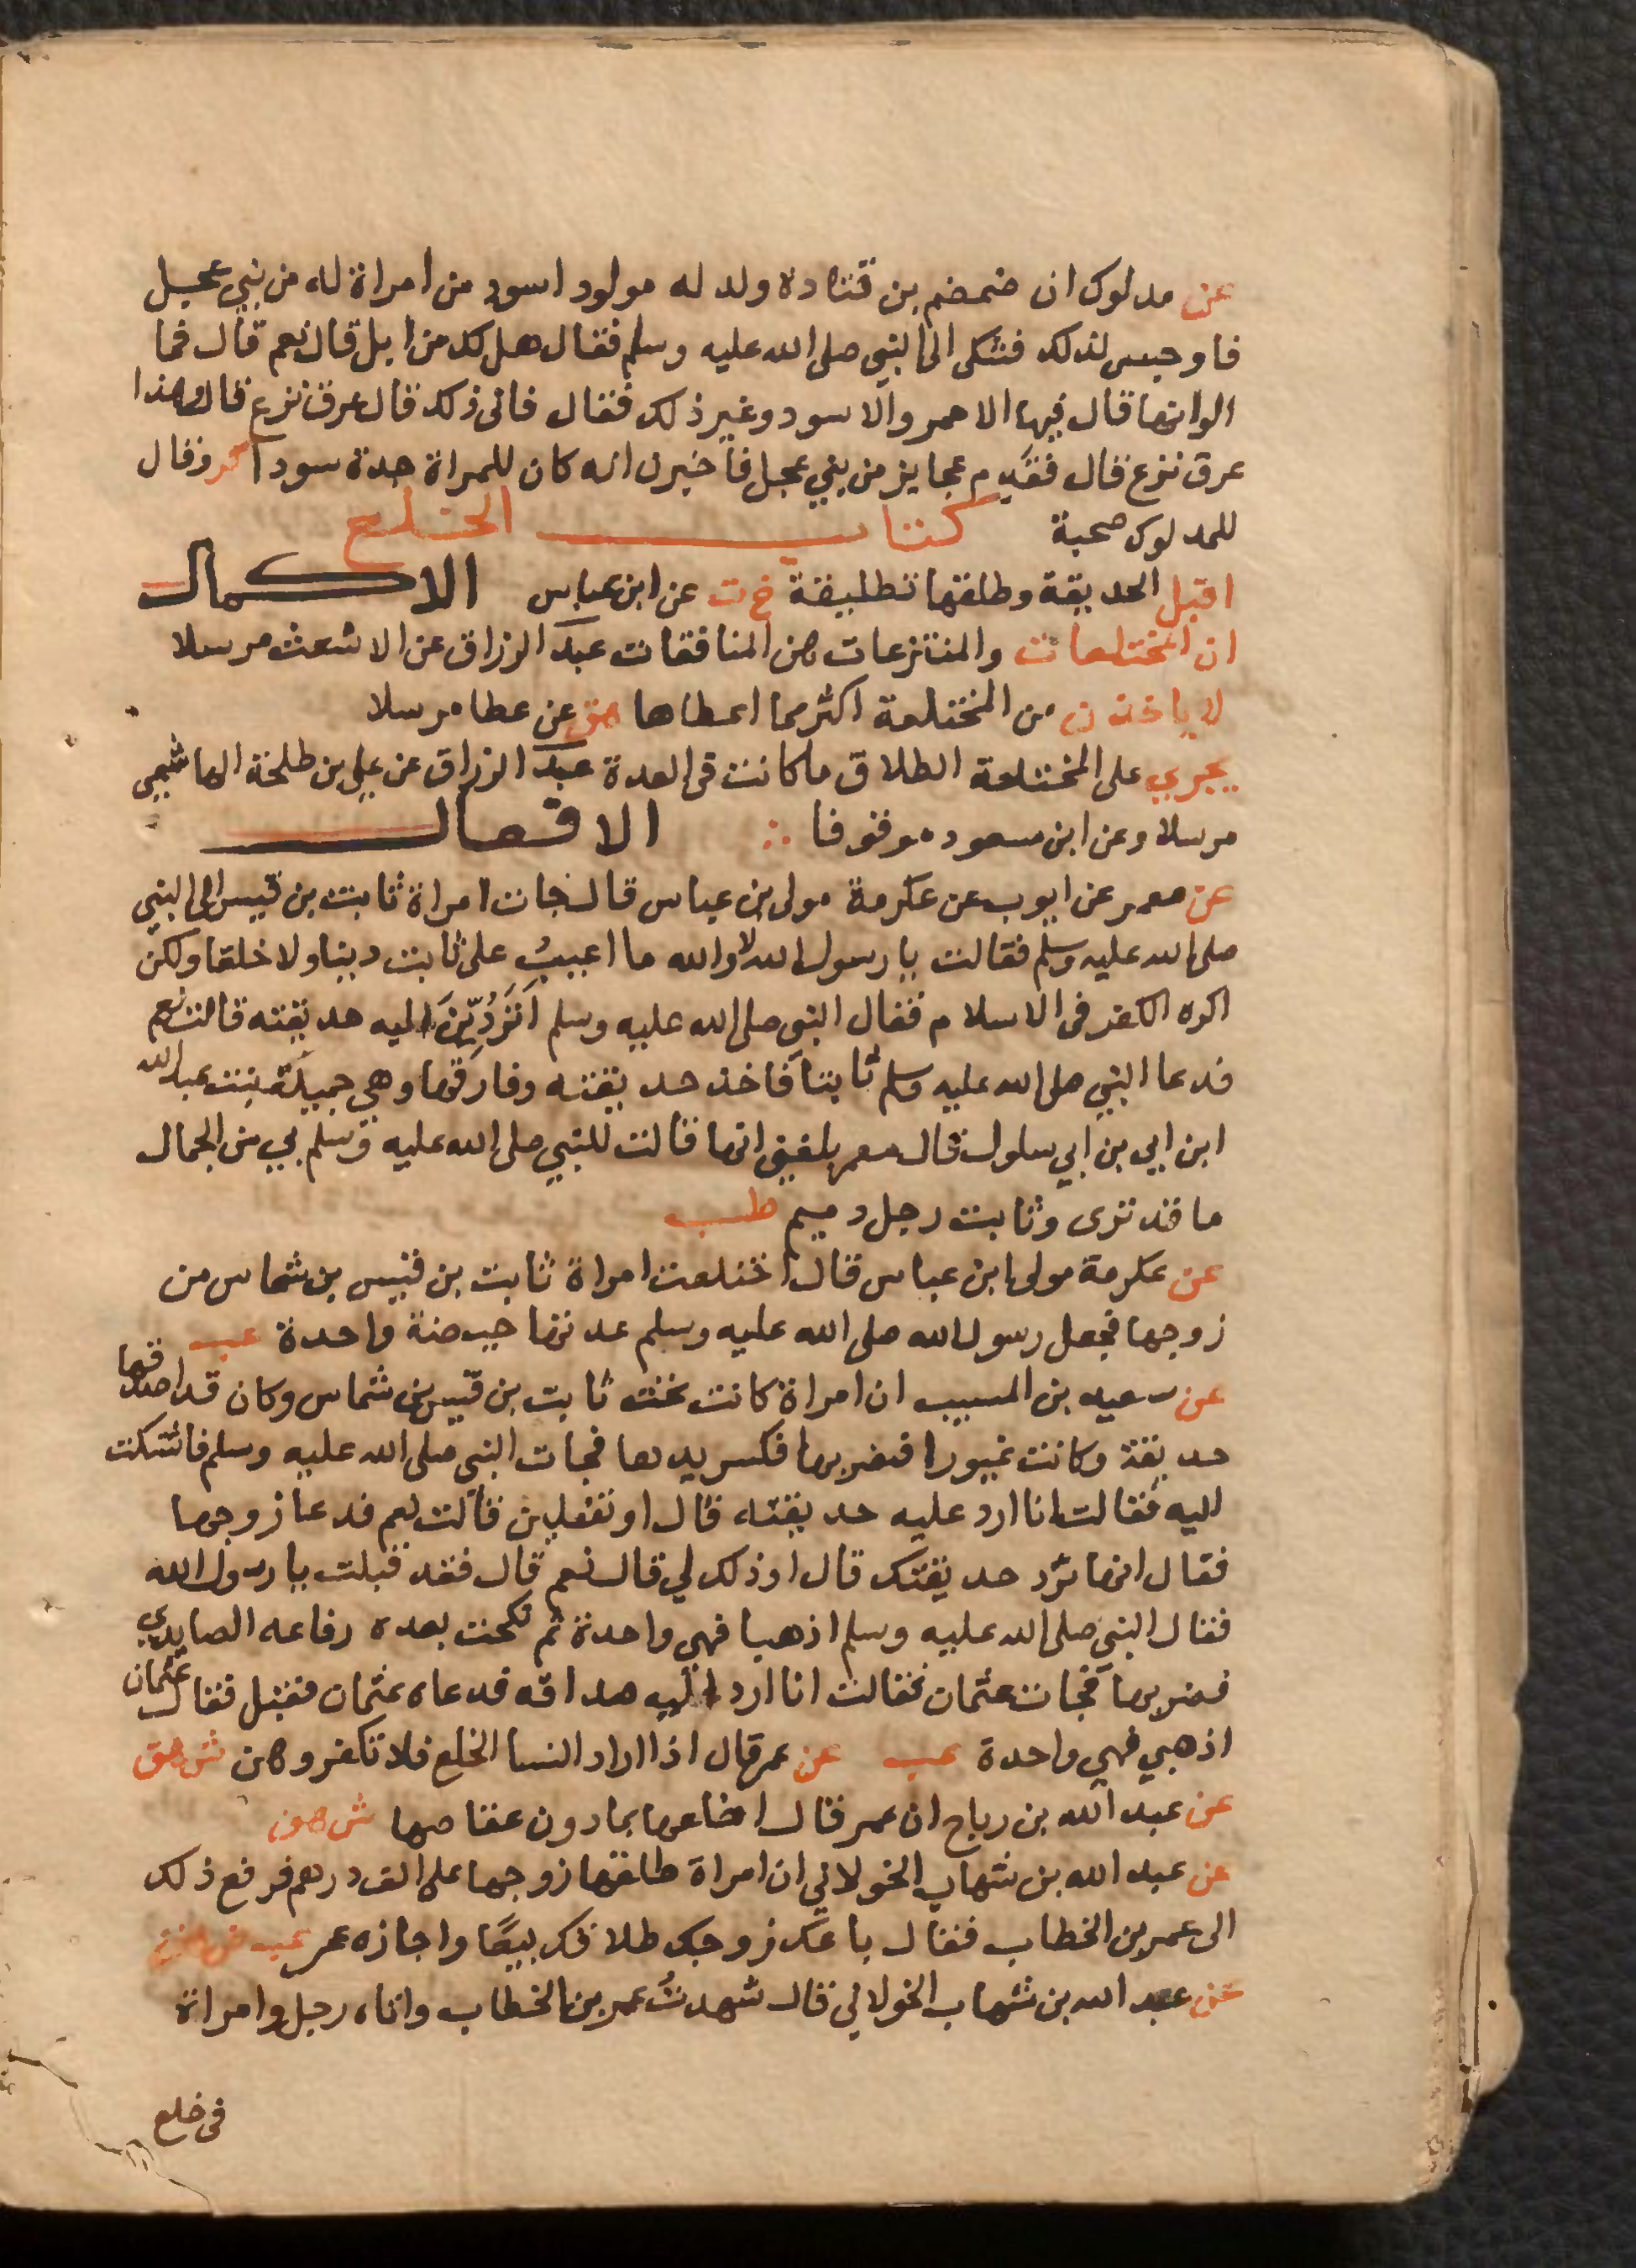 عن مدلوك ان ضمضم بن قتادة ولد له مولود اسود من امراة له من بني عجل
فاوجس لذلك فشكى الى النبي صلى الله عليه وسلم فقال هل لك من ابل قال نعم قال فما
الوانها قال فيها الاحمر والاسود وغير ذلك فقال فانى ذلك قال عرق نزع قال وهذا
عرق نزع قال فقدم عجايز من بني عجل فاخبرن انه كان للمراة جدة سودا كر وقال
للمدلوك صحبة كتاب الخلع
اقبل الحديقة وطلقها تطليقة خ ت عن ابن عباس الاكمال
ان المختلعات والمنتزعات هن المنافقات عبد الرزاق عن الاشعث مرسلا
لا ياخذن من المختلعة اكثر مما اعطاها هق عن عطا مرسلا
يجري على المختلعة الطلاق ما كانت في العدة عبد الرزاق عن علي بن طلحة الهاشمي
مرسلا وعن ابن مسعود موقوفا الافعال
عن معمر عن ايوب عن عكرمة مولى بن عباس قال جات امراة ثابت بن قيس الى النبي
صلى الله عليه وسلم فقالت يا رسول الله لا والله ما اعيبُ على ثابت دينا ولا خلقا ولكن
اكره الكفر في الاسلام فقال النبي صلى الله عليه وسلم اَتَرُدّينَ اليه حديقته قالت نعم
فدعا النبي صلى الله عليه وسلم ثابتا فاخذ حديقته وفارقها وهي جميلة بنت عبد الله
ابن ابي بن ابي سلول قال معمر بلغني انها قالت للنبي صلى الله عليه وسلم بي من الجمال
ما قد ترى وثابت رجل دميم طب
عن عكرمة مولى ابن عباس قال اختلعت امراة ثابت بن قيس بن شماس من
زوجها فجعل رسول الله صلى الله عليه وسلم عدتها حيضة واحدة عب
عن سعيد بن المسيب ان امراة كانت تحت ثابت بن قيس بن شماس وكان قد اصدقها
حديقة وكانت غيورا فضربها فكسر يدها فجات النبي صلى الله عليه وسلم فاشتكت
اليه فقالت انا ارد عليه حديقته قال او تفعلين قالت نعم فدعا زوجها
فقال انها ترد حديقتك قال او ذلك لي قال نعم قال فقد قبلت يا رسول الله
فقال النبي صلى الله عليه وسلم اذهبا فهي واحدة ثم نكحت بعده رفاعه العايدي
فضربها فجات عثمان فقالت انا ارد اليه صداقه فدعاه عثمان فقبل فقال عثمان
اذهبي فهي واحدة عب عن عمر قال اذا اراد النسا الخلع فلا تكفروهن ش هق
عن عبد الله بن رباح ان عمر قال اخلعها بما دون عقاصها ش هق
عن عبد الله بن شهاب الخولاني ان امراة طلقها زوجها على الف درهم فرفع ذلك
الى عمر بن الخطاب فقال باعك زوجك طلاقك بيعًا واجازه عمر عب ض هق
عن عبد الله بن شهاب الخولاني قال شهدت عمر بن الخطاب واتاه رجل وامراة
في خلع